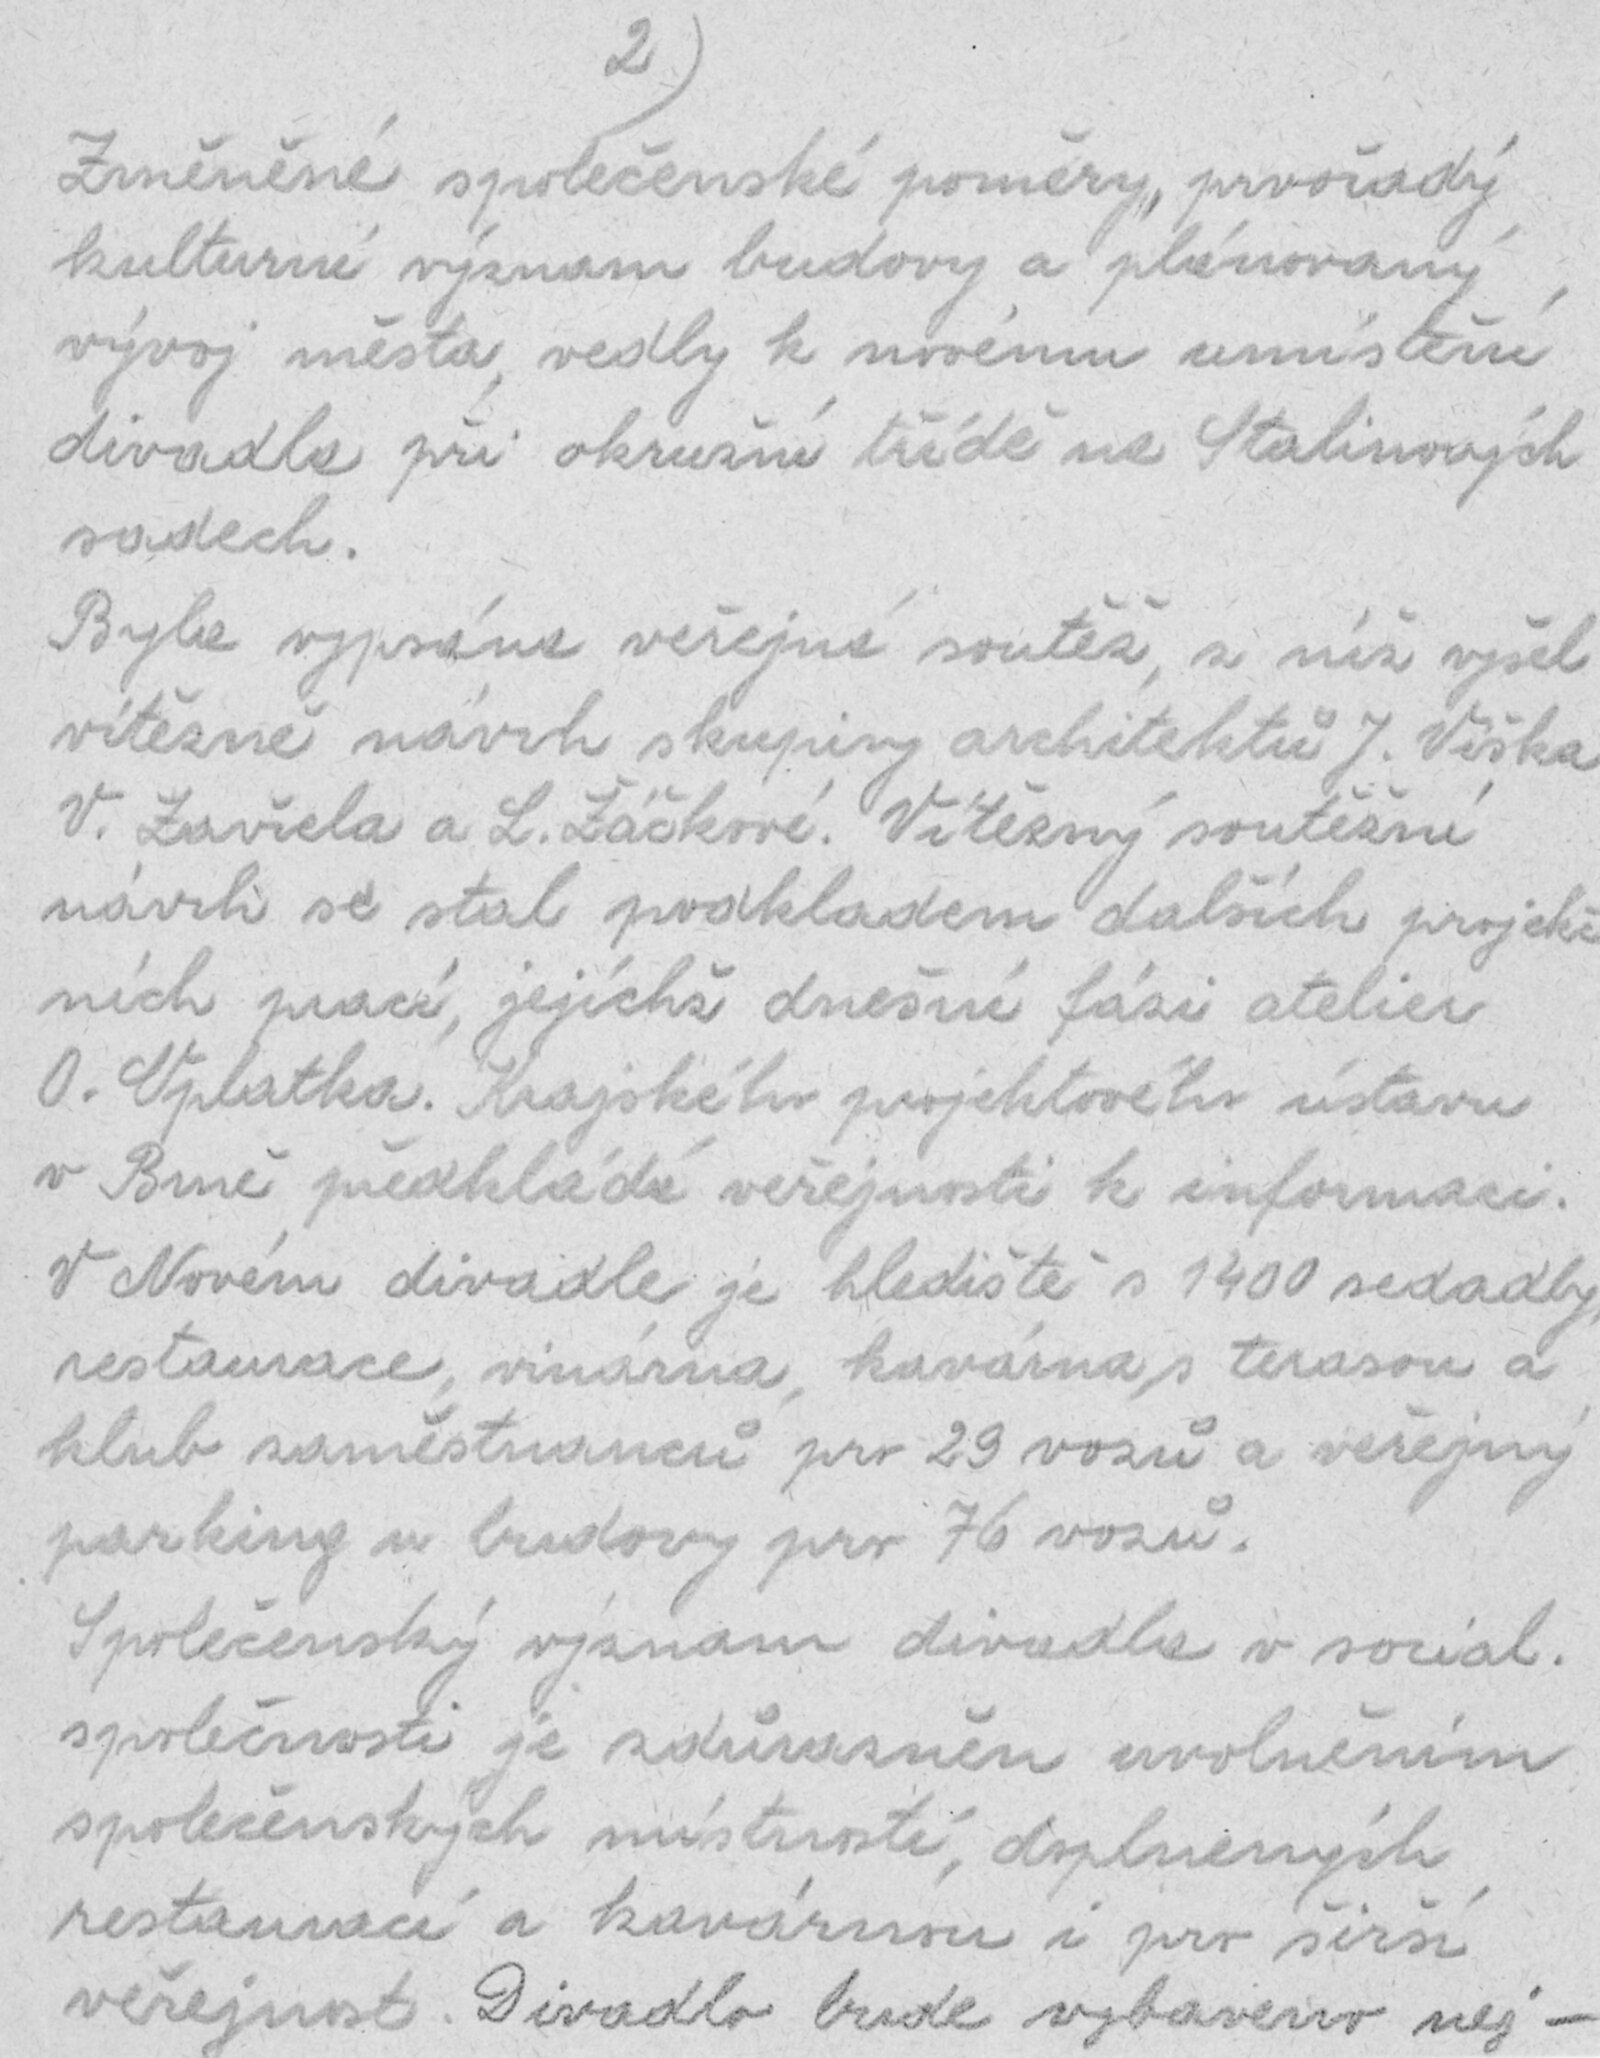 2)
Změněné společenské poměry, prvořadý
kulturní význam budovy a plánovaný
vývoj města, vedly k novému umístění
divadla při okružní třídě na Stalinových
sadech.
Byla vypsána veřejná soutěž, z níž vyšel
vítězně návrh skupiny architektů J. Víška
V. Zavřela a L. Žáčkové. Vítězný soutěžní
návrh se stal podkladem dalších projekč
ních prací, jejichž dnešní fázi atelier
O. Oplatka. Krajského projektového ústavu
v Brně předkládá veřejnosti k informaci.
V Novém divadle je hlediště s 1400 sedadly,
restaurace, vinárna, kavárna s terasou a
klub zaměstnanců pro 29 vozů a veřejný
parking u budovy pro 76 vozů.
Společenský význam divadla v social.
společnosti je zdůrazněn uvolněním
společenských místností, doplnených
restaurací a kavárnou i pro širší
veřejnost. Divadlo bude vybaveno nej-